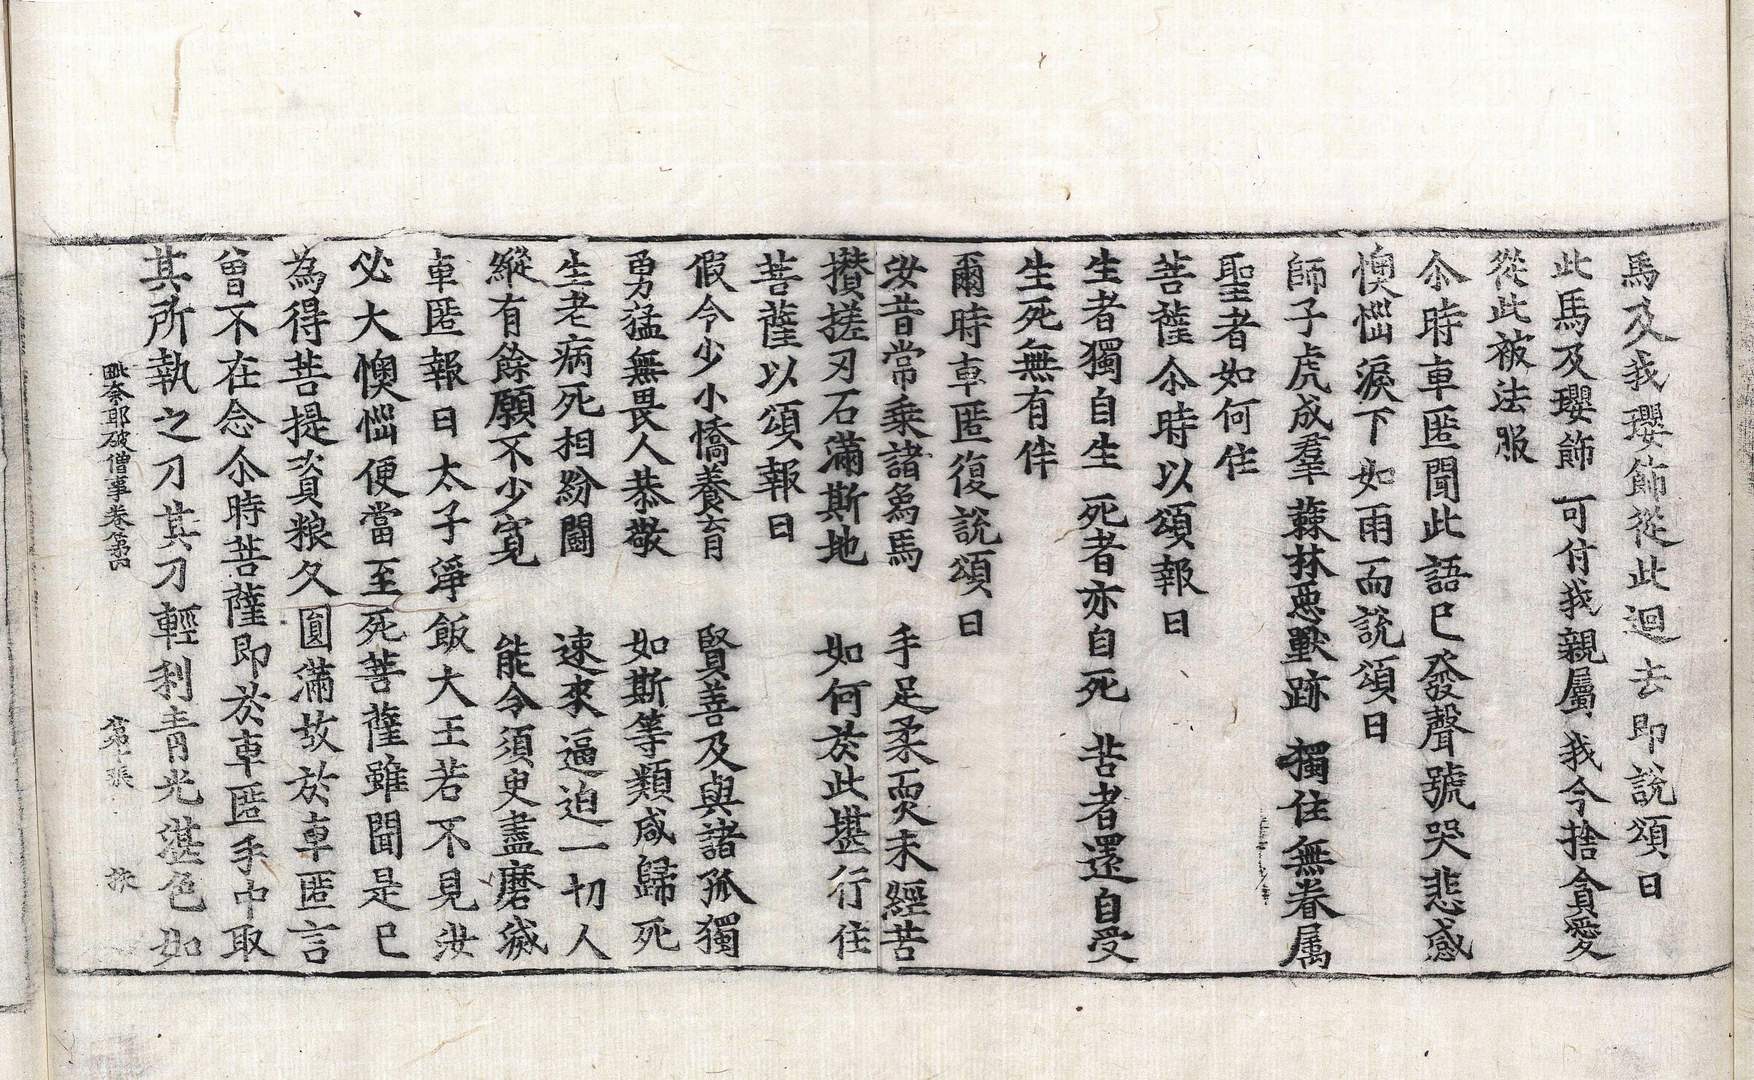 馬及我瓔飾從此迴去即說頌曰
此馬及瓔飾 可付我親屬 我今捨貪愛
從此被法服
尒時車匿聞此語已發聲號哭悲感
懊惱淚下如雨而說頌曰
師子虎成羣 蕀林惡獸跡 獨住無眷属
聖者如何住
菩薩尒時以頌報曰
生者獨自生 死者亦自死 苦者還自受
生死無有伴
爾時車匿復說頌曰
汝昔常乘諸象馬 手足柔耎未經苦
攢搓刃石滿斯地 如何於此堪行住
菩薩以頌報曰
假令少小憍養育 賢善及與諸孤獨
勇猛無畏人恭敬 如斯等類咸歸死
生老病死相紛鬪 速來逼迫一切人
縱有餘願不少寬 能令須臾盡磨滅
車匿報曰太子淨飯大王若不見汝
必大懊惱便當至死菩薩雖聞是已
為得菩提資粮久圓滿故於車匿言
曾不在念尒時菩薩即於車匿手中取
其所執之刀其刀輕利青光湛色如
毗奈耶破僧事卷第四 第十張